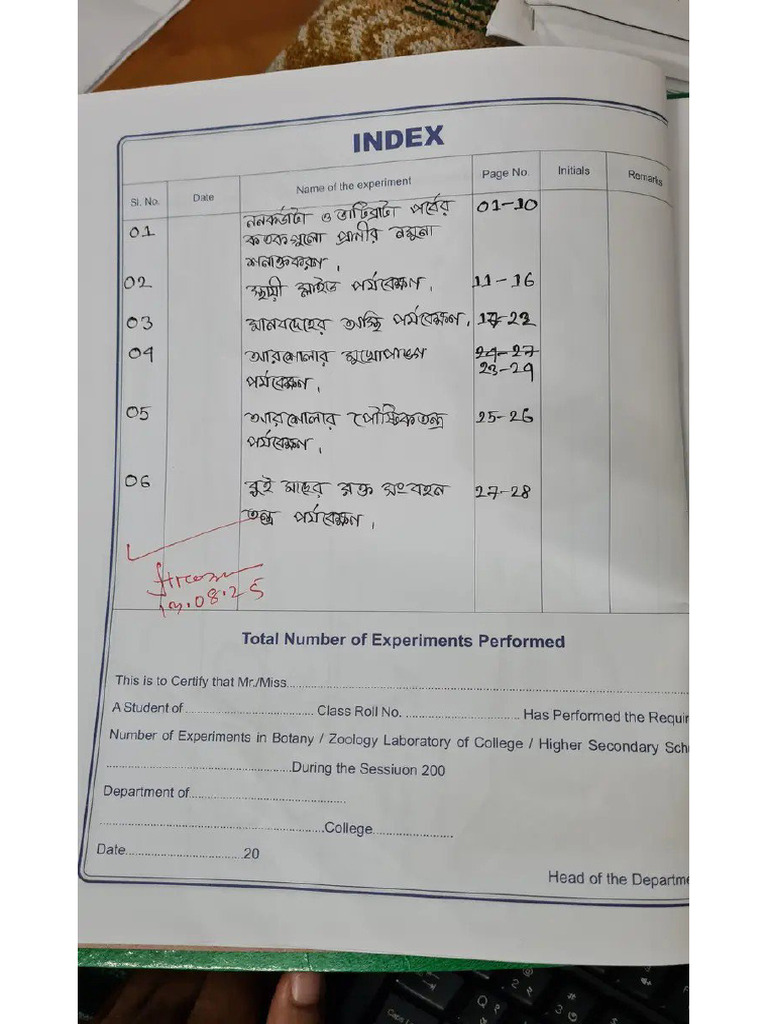 INDEX
Sl. No. Date Name of the experiment Page No. Initials Remarks
01 ননকর্ডাটা ও ভার্টিব্রাটা পর্বের 01-10
কতকগুলো প্রানীর নমুনা
শনাক্তকরণ।
02 স্থায়ী স্লাইড পর্যবেক্ষণ। 11-16
03 মানবদেহের অস্থি পর্যবেক্ষণ। 17-22
04 আরশোলার মুখোপাঙ্গ 24-27
পর্যবেক্ষণ। 23-24
05 আরশোলার পৌষ্টিকতন্ত্র 25-26
পর্যবেক্ষণ।
06 রুই মাছের রক্ত সংবহন 27-28
তন্ত্র পর্যবেক্ষণ।
13.08.25
Total Number of Experiments Performed
This is to Certify that Mr./Miss
A Student of Class Roll No. Has Performed the Requir
Number of Experiments in Botany / Zoology Laboratory of College / Higher Secondary Sch
During the Sessiuon 200
Department of
College
Date 20
Head of the Departme